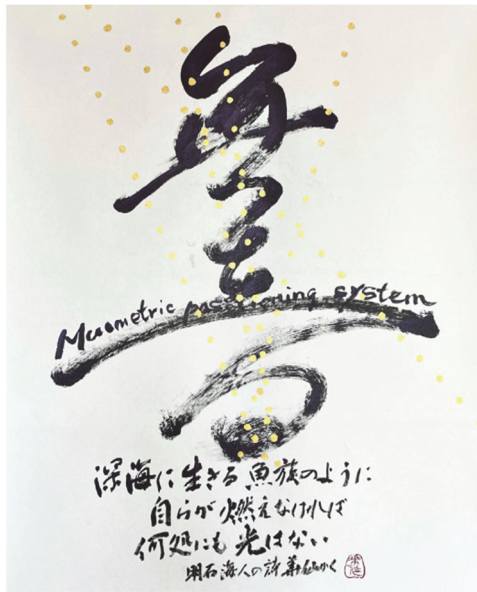 Muometric positioning system
深海に生きる魚族のように
自らが燃えなければ
何処にも光はない
明石海人の詩 かく